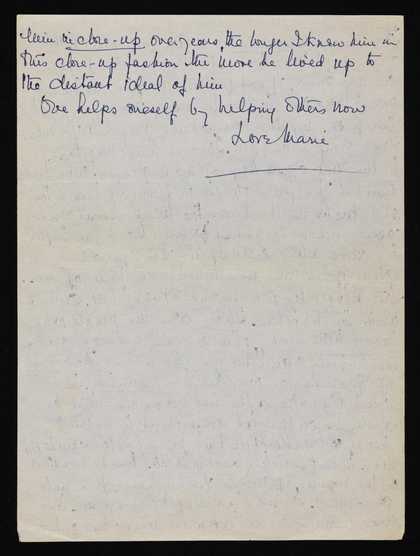 him in close-up over years, the longer I knew him in
this close-up fashion the more he lived up to
the distant ideal of him
One helps oneself by helping others now
Love Marie